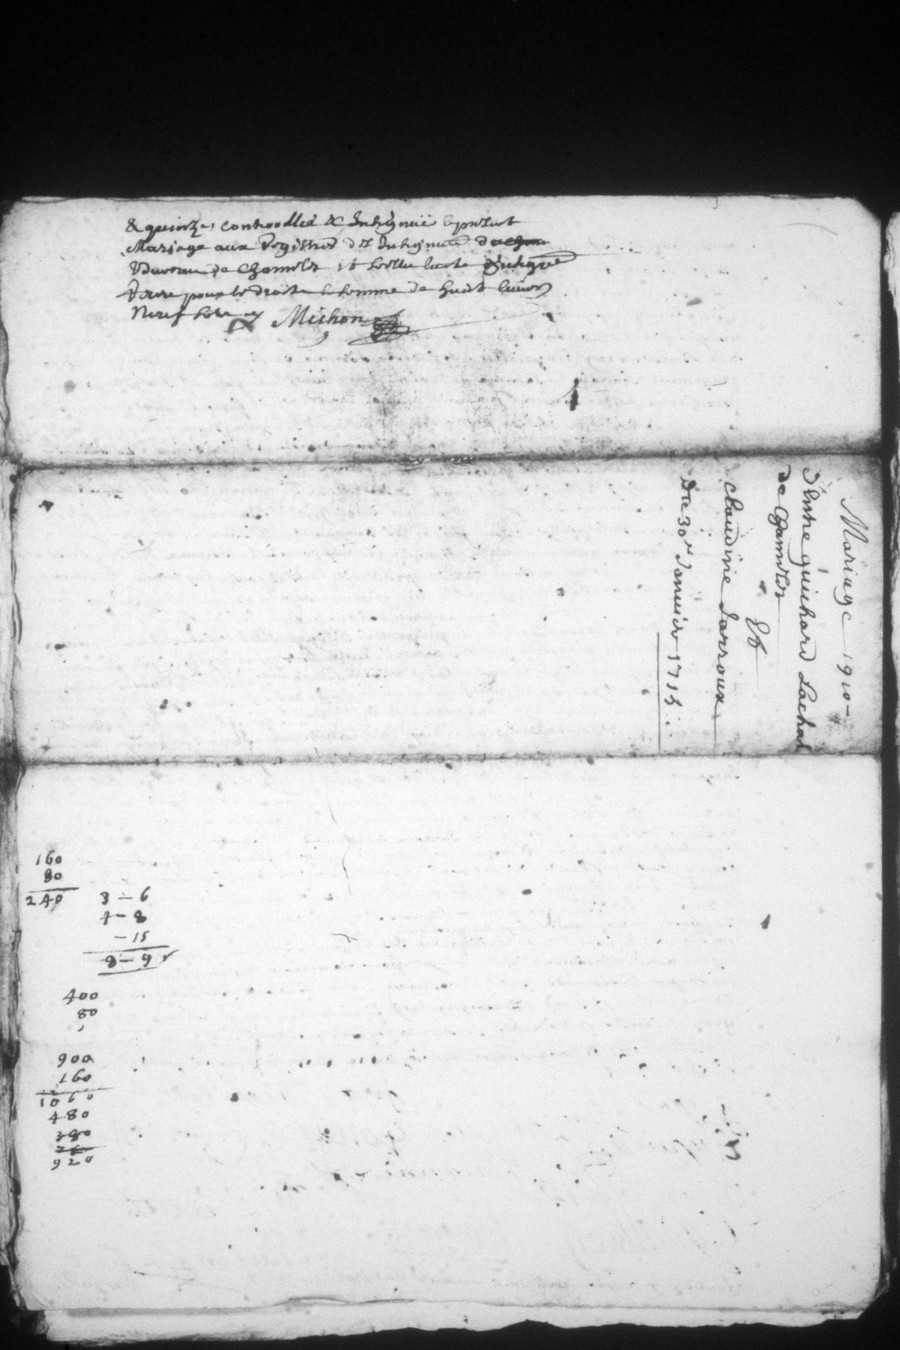 & quinze, controollé & Insignué le present
Mariage aux Registres des Insignuõ
Bureau de Chamelet
pour le droit la somme de huit livres
Neuf sols Michon
Mariage 1910
d'Entre guichard Lachal
de Chamelet
Et
Claudine Larroux
Du 30e Janvier 1715.
160
80
240
3 – 6
4 – 8
– 15
8 – 9
400
80
900
160
1060
480
380
920